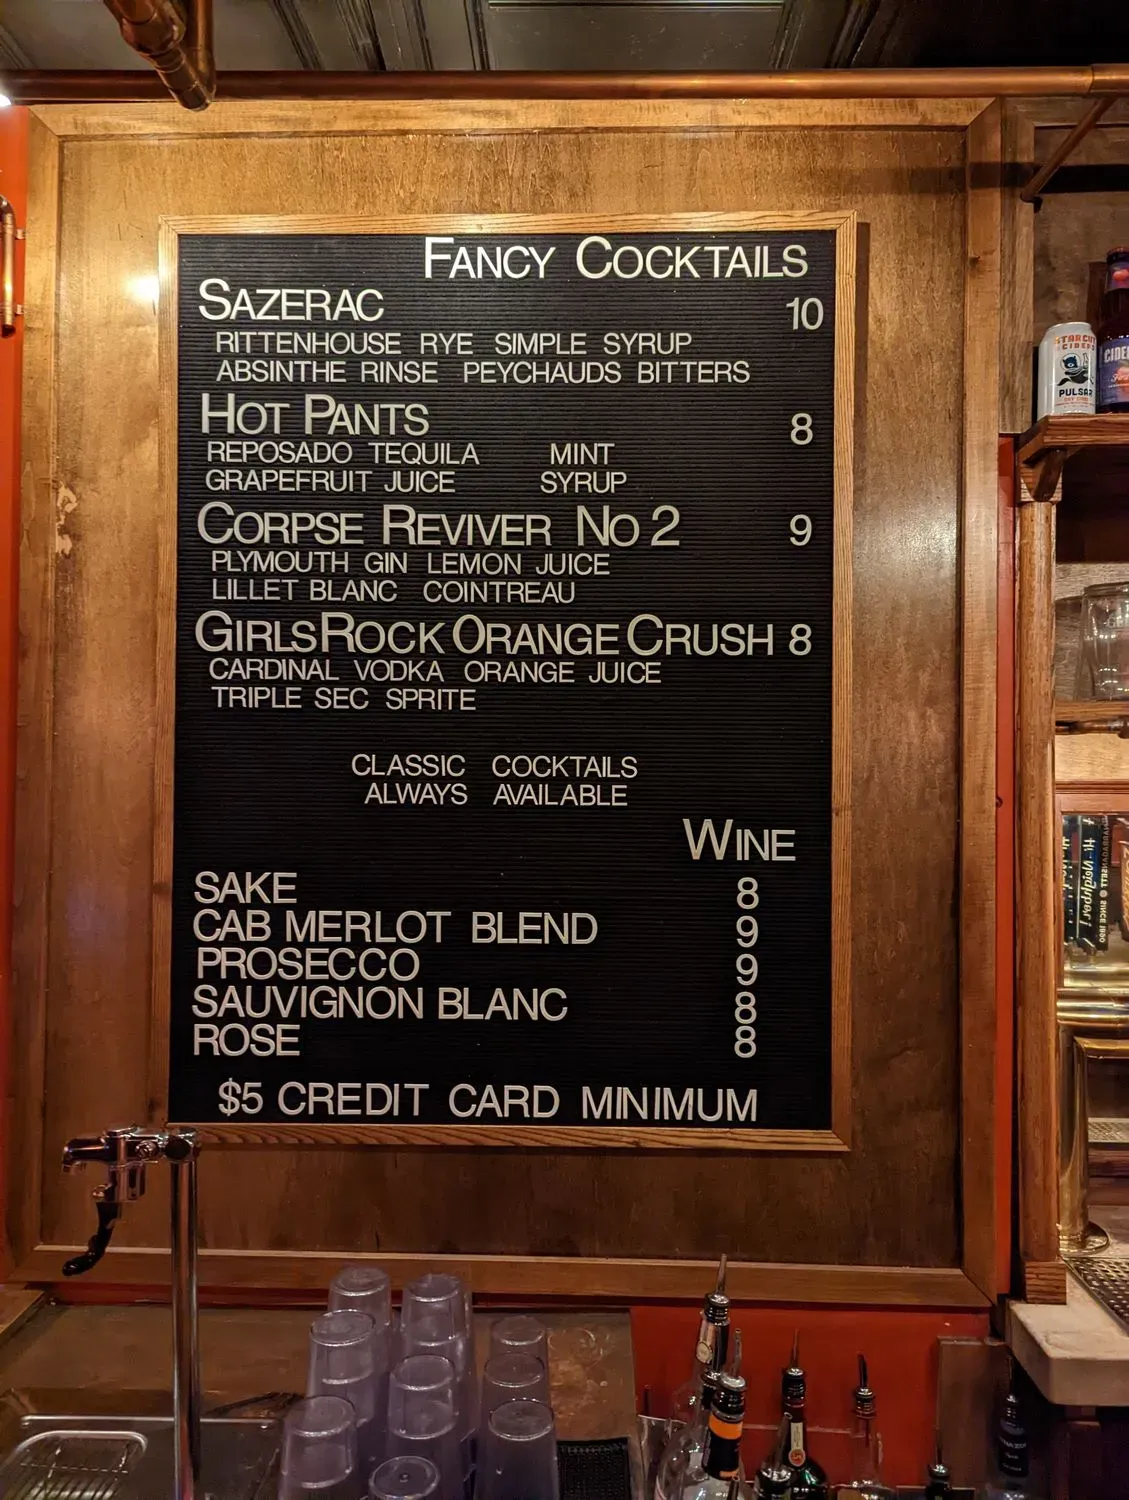 FANCY COCKTAILS
SAZERAC 10
RITTENHOUSE RYE SIMPLE SYRUP
ABSINTHE RINSE PEYCHAUDS BITTERS
HOT PANTS 8
REPOSADO TEQUILA MINT
GRAPEFRUIT JUICE SYRUP
CORPSE REVIVER NO 2 9
PLYMOUTH GIN LEMON JUICE
LILLET BLANC COINTREAU
GIRLSROCK ORANGE CRUSH 8
CARDINAL VODKA ORANGE JUICE
TRIPLE SEC SPRITE
CLASSIC COCKTAILS
ALWAYS AVAILABLE
WINE
SAKE 8
CAB MERLOT BLEND 9
PROSECCO 9
SAUVIGNON BLANC 8
ROSE 8
$5 CREDIT CARD MINIMUM
PULSAR
CIDE